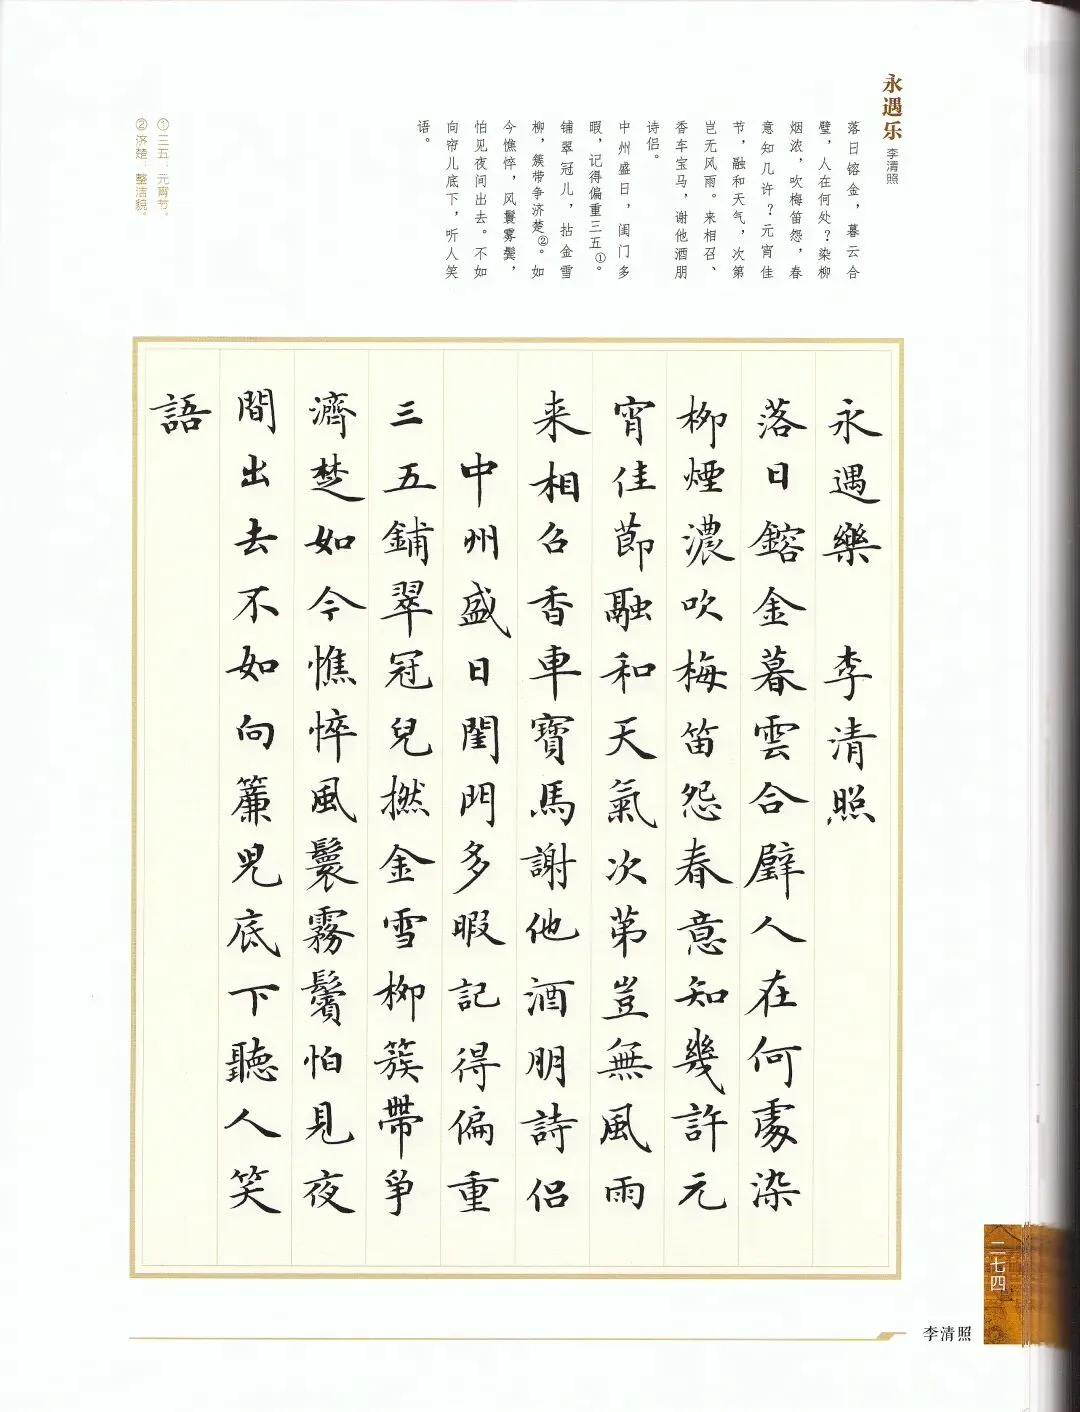 永遇乐
李清照
落日镕金，暮云合
璧，人在何处？染柳
烟浓，吹梅笛怨，春
意知几许？元宵佳
节，融和天气，次第
岂无风雨。来相召、
香车宝马，谢他酒朋
诗侣。
中州盛日，闺门多
暇，记得偏重三五①。
铺翠冠儿，拈金雪
柳，簇带争济楚②。如
今憔悴，风鬟雾鬓，
怕见夜间出去。不如
向帘儿底下，听人笑
语。
①三五：元宵节。
②济楚：整洁貌。
永遇樂 李清照
落日鎔金暮雲合璧人在何處染
柳煙濃吹梅笛怨春意知幾許元
宵佳節融和天氣次第豈無風雨
来相召香車寶馬謝他酒朋詩侣
中州盛日閨門多暇記得偏重
三五鋪翠冠兒撚金雪柳簇帶爭
濟楚如今憔悴風鬟霧鬢怕見夜
間出去不如向簾兒底下聽人笑
語
二七四
李清照